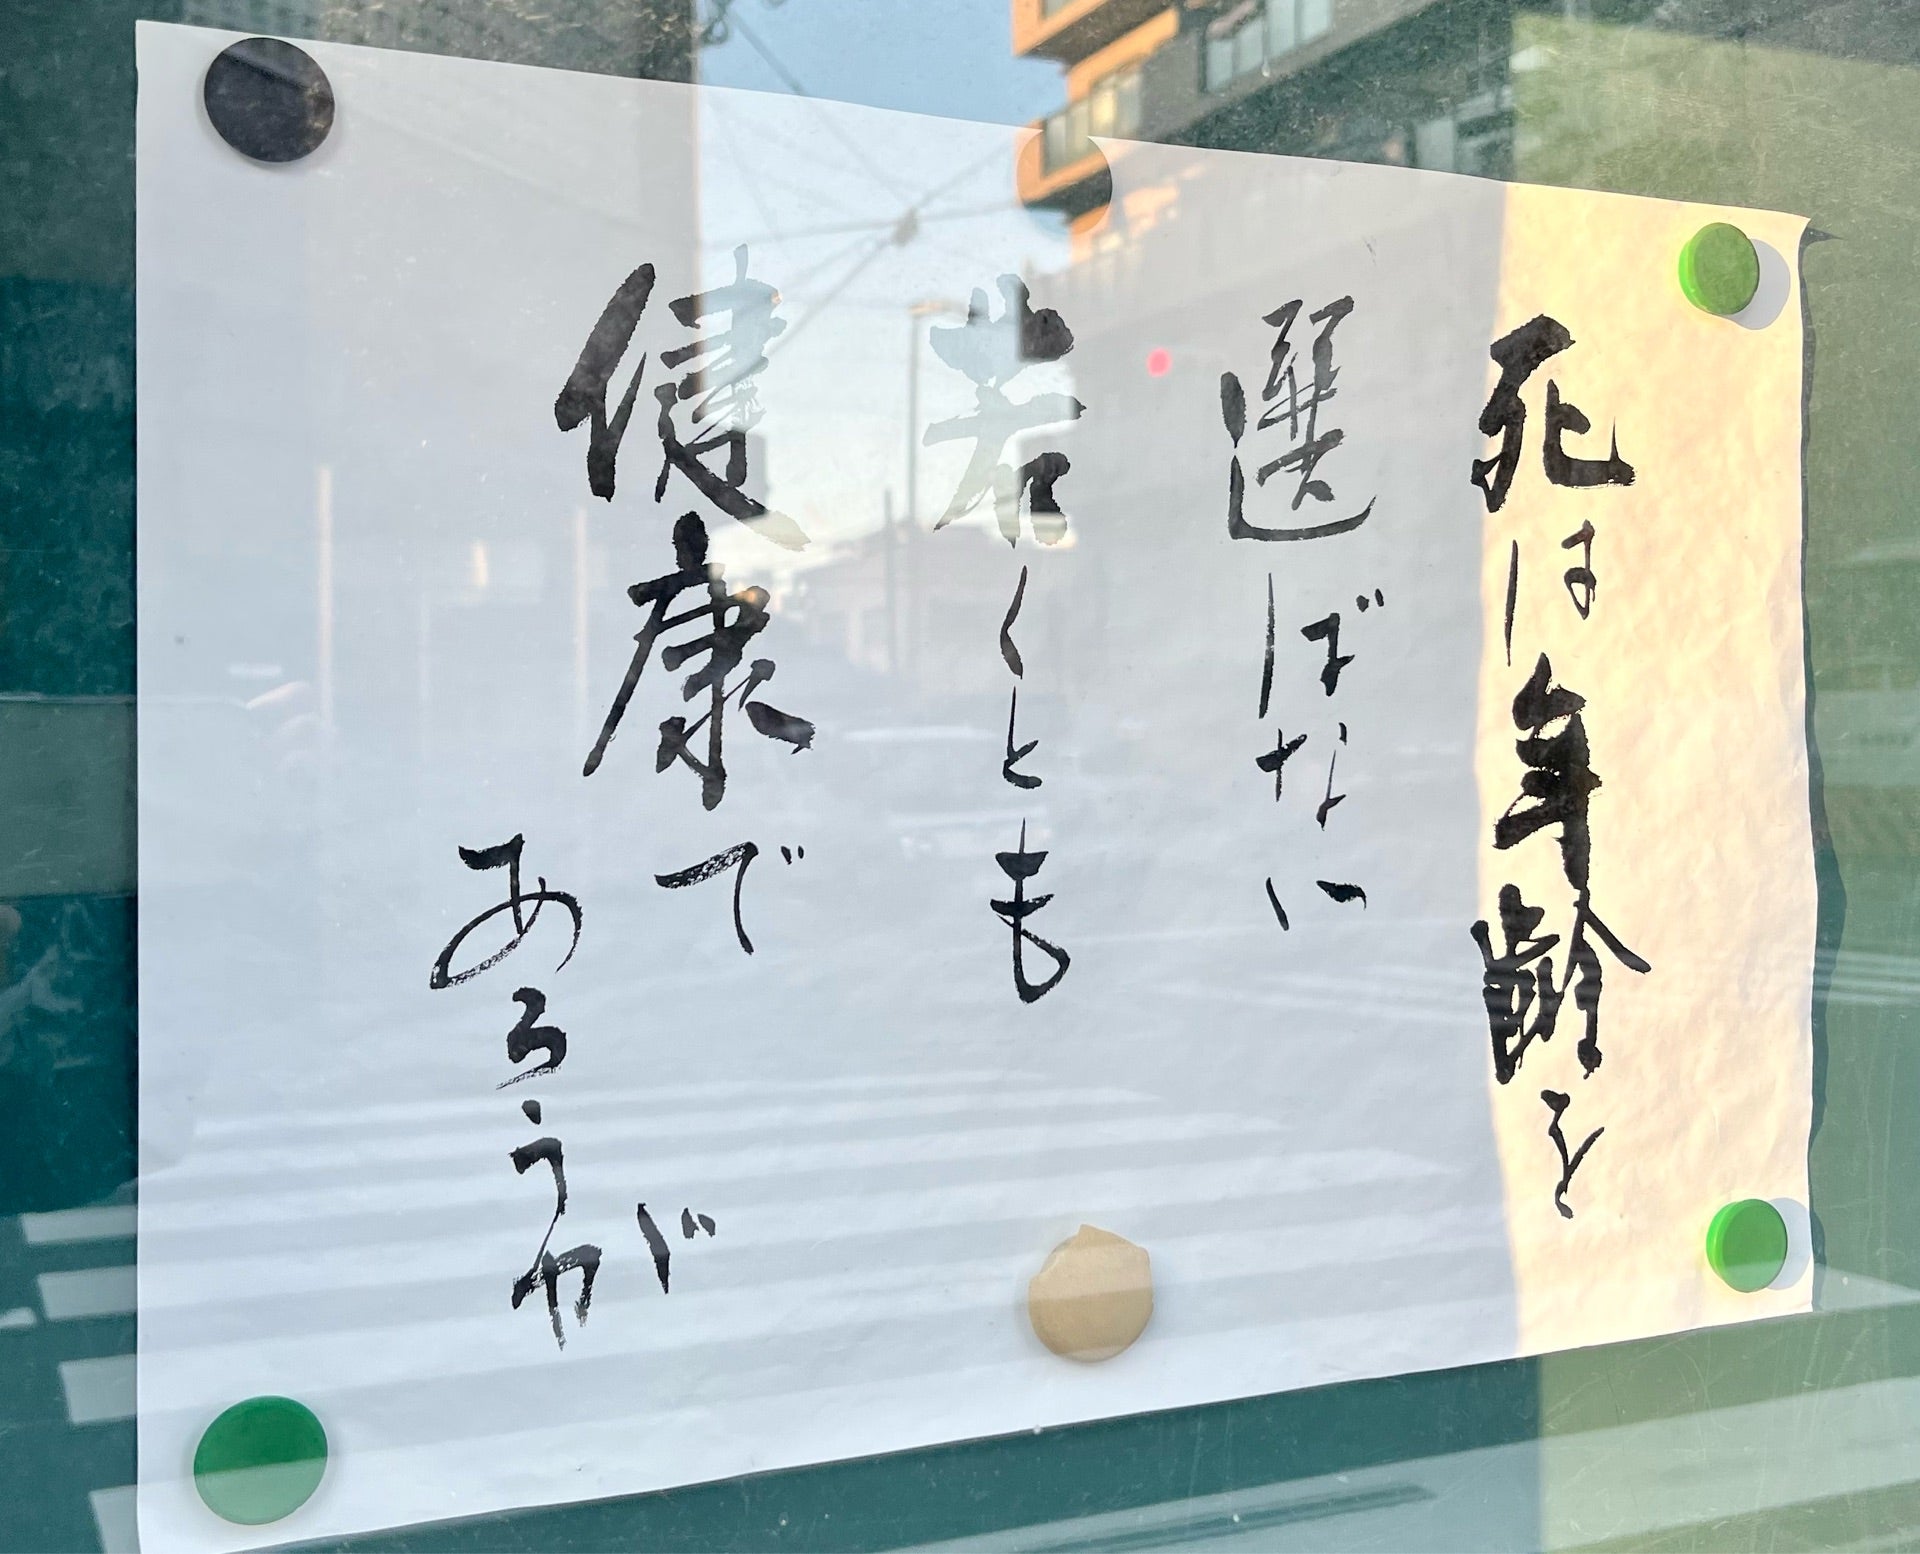 死は年齢を
選ばない
若くとも
健康で
あろうが